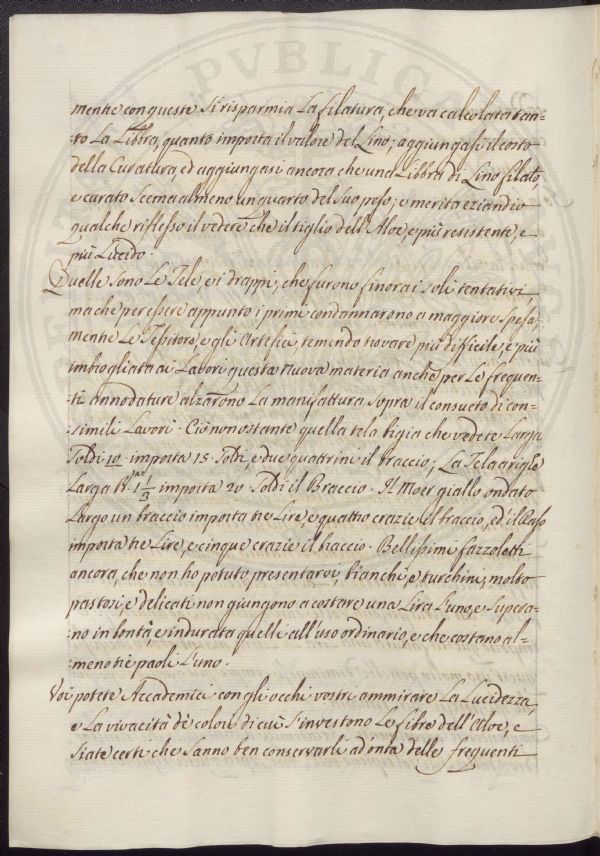 mente con queste si risparmia la filatura, che va calcolata tan-
-to la Libbra, quanto importa il valore del Lino; aggiungasi il costo
della Curatura, ed aggiungasi ancora che una Libbra di Lino filato,
e curato scema almeno un quarto del suo peso; e merita eziandio
qualche riflesso il vedere che il tiglio dell'Aloe, e più resistente, e
più Lucido.
Quelle sono Le Tele e i drappi, che furono finora i soli tentativi,
ma che per essere appunto i primi condannarono a maggiore spesa,
mentre Le Tessitore, e gli Artefici temendo trovare più difficile, e più
imbrogliata ai Lavori questa nuova materia anche per Le frequen-
-ti annodature alzarono La manifattura sopra il consueto di con-
-simili Lavori. Ciò nonostante quella tela bigia che vedete Larga
Soldi 10 importa 15. Soldi, e due quattrini il braccio; La Tela a righe
Larga B. 1 1/3 importa 20. Soldi il Braccio. Il Moer giallo ondato
Largo un braccio importa tre Lire, e quattro crazie il braccio, ed il Raso
importa tre Lire, e cinque crazie il braccio. Bellissimi fazzoletti
ancora, che non ho potuto presentarvi, bianchi, e turchini, molto
pastosi, e delicati non giungono a costare una Lira l'uno, e supera-
-no in bontà, e in durata quelli all'uso ordinario, e che costano al-
-meno tre paoli l'uno.
Voi potete Accademici con gli occhi vostri ammirare La Lucidezza,
e La vivacità dè colori di cui s'investono Le fibre dell'Aloe, e
siate certi che sanno ben conservarli ad onta delle frequenti